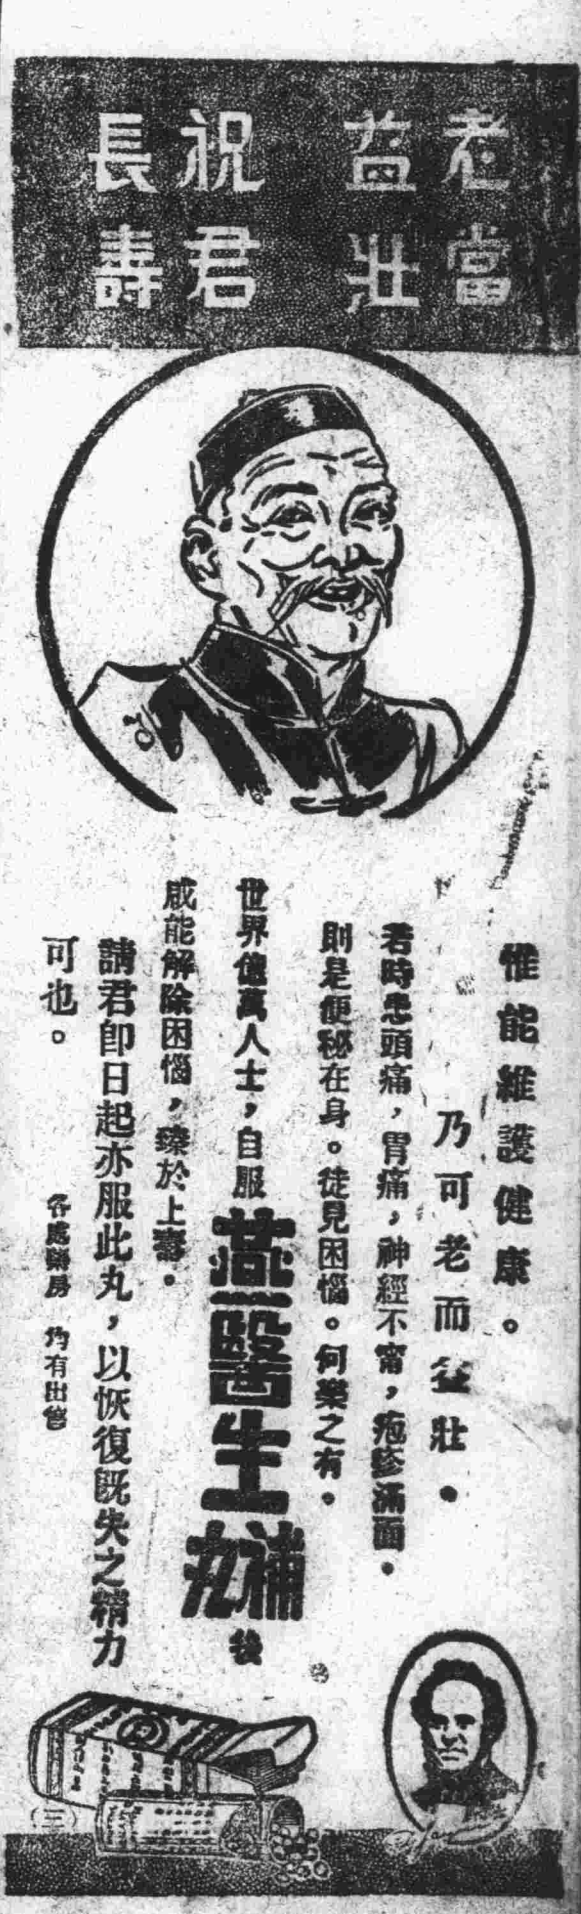 老當
益壯
祝君
長壽
惟能維護健康。
乃可老而益壯。
若時患頭痛，胃痛，神經不甯，疱疹滿面。
則是便秘在身。徒見困惱。何樂之有。
世界億萬人士，自服燕醫生補丸後
咸能解除困惱，臻於上壽。
請君卽日起亦服此丸，以恢復旣失之精力
可也。
各處藥房 均有出售
(三)